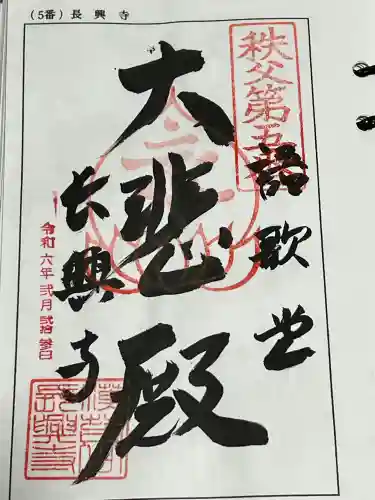 (5番) 長興寺
秩父第五番
語歌堂
大悲殿
長興寺
令和六年弐月弐拾参日